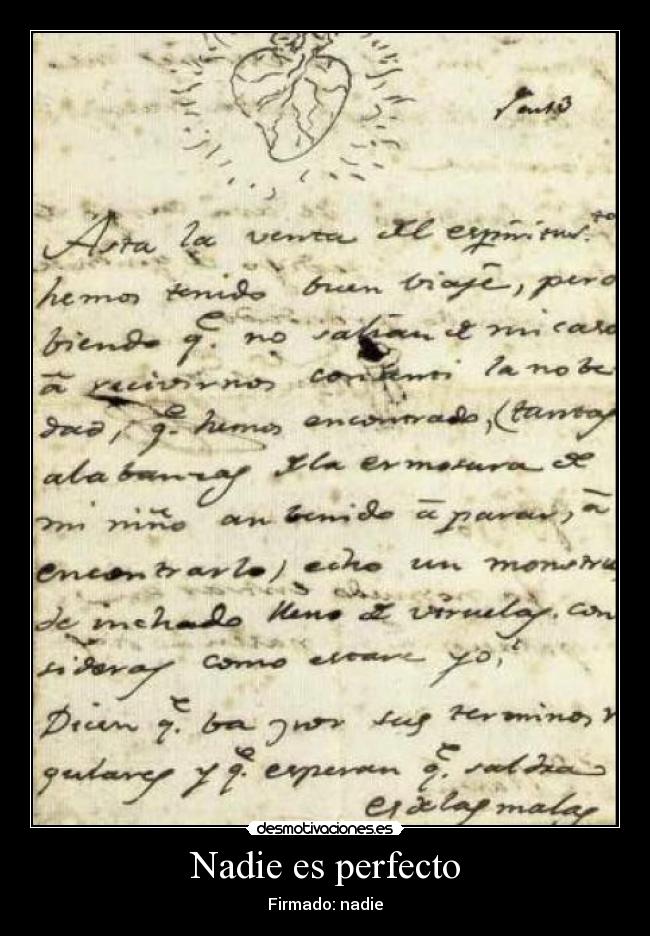 Asta la venta del espiritus.to
hemos tenido buen biaje, pero
biendo q.e no salian de mi casa
à recivirnos la nobe
dad, q.e hemos encontrado, (tantas
alabanzas dela ermosura de
mi niño an benido à parar, à
encontrarlo) echo un monstru
de inchado lleno de viruelas. con
sideras como estare yo,
Dicen q.e ba por sus terminos r
gulares y q.e esperan q.e saldra
es delas malas
desmotivaciones.es
Nadie es perfecto
Firmado: nadie